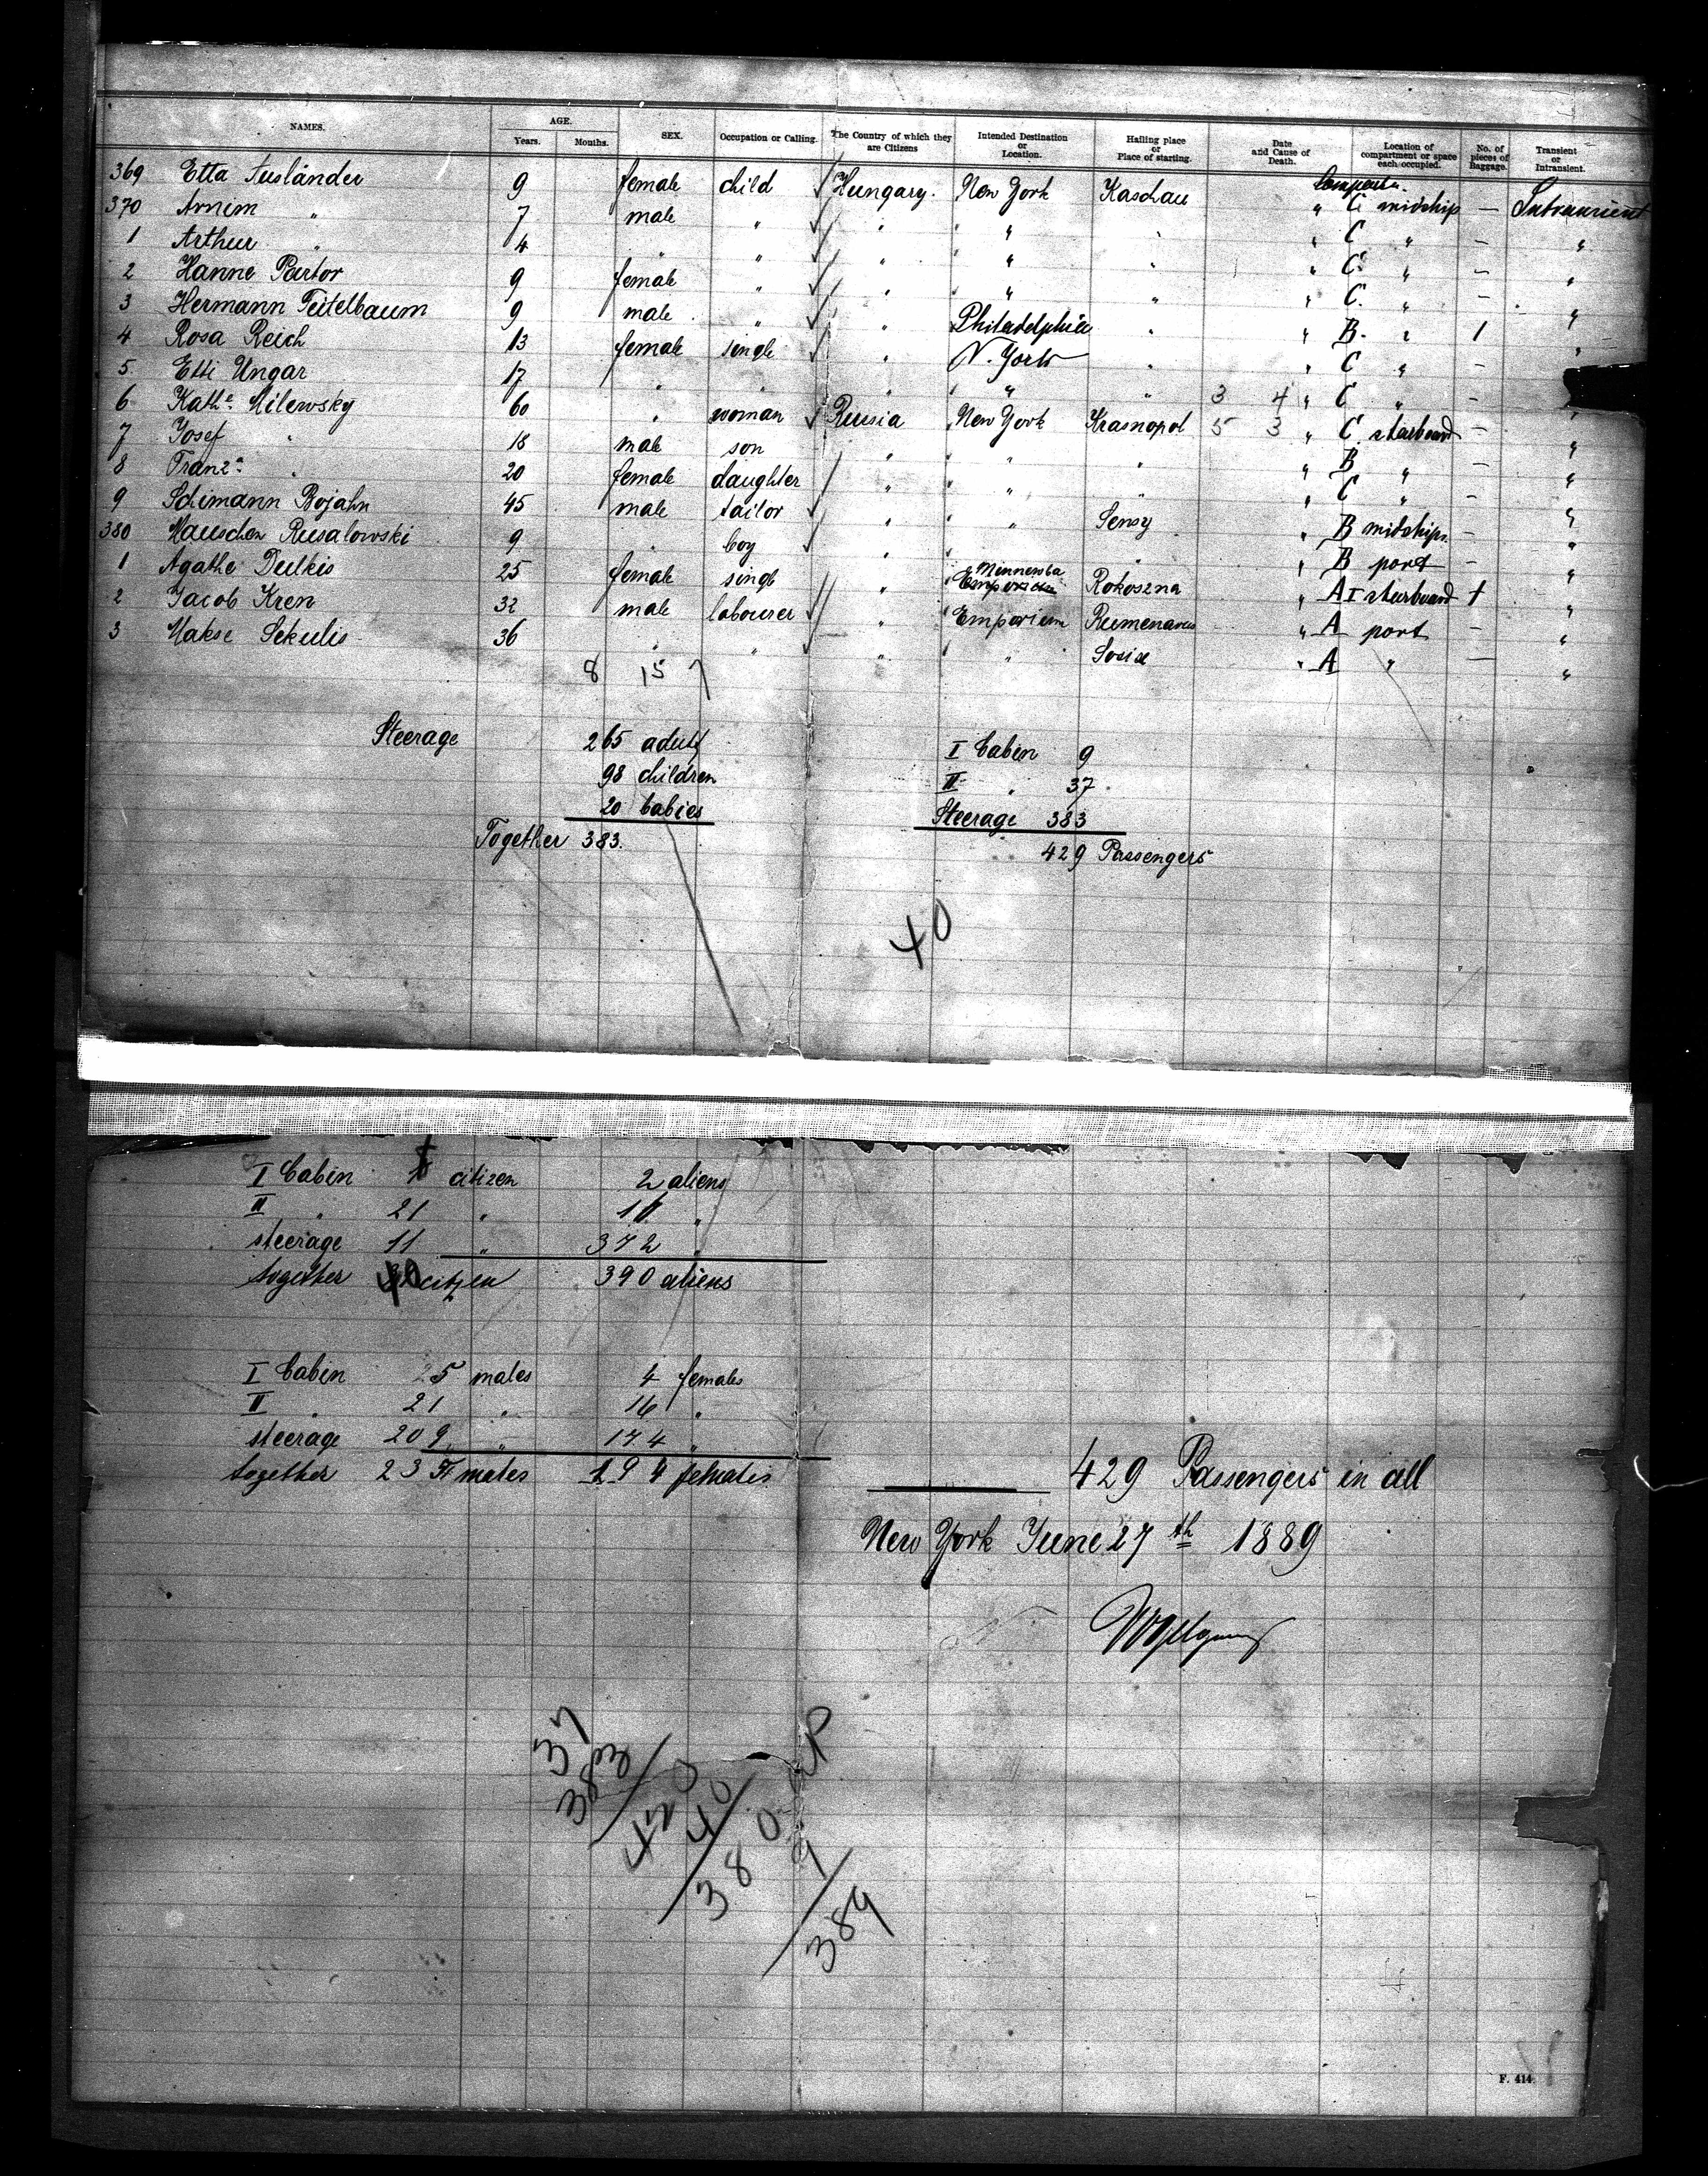 NAMES. AGE. Years. Months. SEX. Occupation or Calling. The Country of which they are Citizens Intended Destination or Location. Hailing place or Place of starting. Date and Cause of Death. Location of compartment or space each occupied. No. of pieces of Baggage. Transient or Intransient.
369 Etta Ausländer 9 female child Hungary. New York Kaschau " C midship — Intransient
370 Arnim " 7 male " " " " " C " — "
1 Arthur " 4 " " " " " " C. " — "
2 Hanne 9 female " " " " " C. " — "
3 Hermann Teitelbaum 9 male " " Philadelphia " " B. " 1 "
4 Rosa Reich 13 female single " N. York " " C " — "
5 Etti Ungar 17 " " " " " 3 4 " C " — "
6 Kathe. Milewsky 60 " woman Russia New York Krasnopol 5 3 " C starboard — "
7 Josef " 18 male son " " " " B " — "
8 Franza " 20 female daughter " " " " C " — "
9 Schimann Bojahn 45 male tailor " " Sensy " B midships. — "
380 Mauschen Rusalowski 9 " boy " " " " B port — "
1 Agathe Dulkis 25 female single " Minnesota Emporium Rokoszna " A I starboard 1 "
2 Jacob Kren 32 male labourer " Emporium " A port — "
3 Makse Sekulis 36 " " " " " A " — "
8 15 7
Steerage 265 adults I Cabin 9
98 children II " 37
20 babies Steerage 383
Together 383. 429 Passengers
40
I Cabin citizen 2 aliens
II " 21 " 16 "
steerage 11 " 372 "
together 40 citizen 390 aliens
I Cabin 5 males 4 females
II " 21 " 16 "
steerage 209 " 174 "
together 235 males 194 females
429 Passengers in all
New York June 27th 1889
380
9
389
F. 414